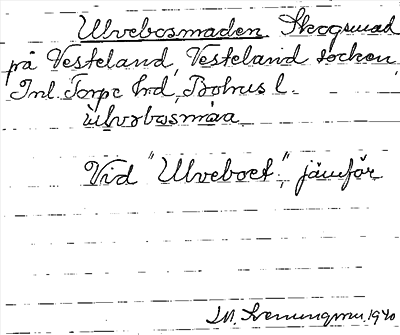 Ulvebosmaden Skogsmad
på Vesteland, Vesteland socken,
Inl. Torpe hrd, Bohus l.
ulvəbosmáa
Vid "Ulveboet", jämför
M. Svenungsson 1940